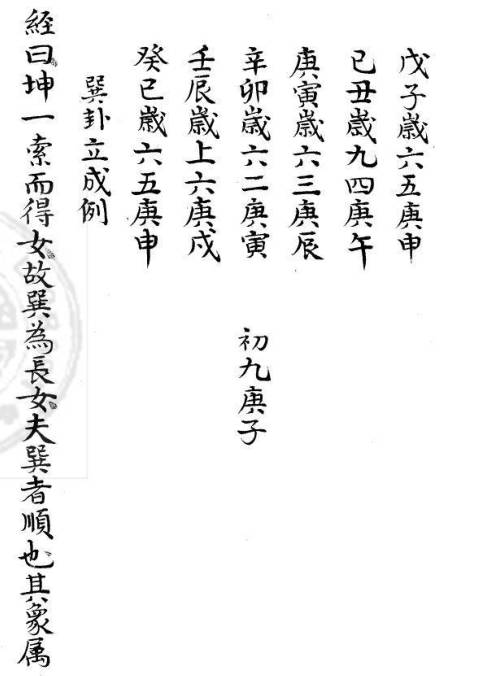 戊子歲六五庚申
已丑歲九四庚午
庚寅歲六三庚辰
辛卯歲六二庚寅 初九庚子
壬辰歲上六庚戌
癸巳歲六五庚申
巽卦立成例
經曰坤一索而得女故巽為長女夫巽者順也其象属